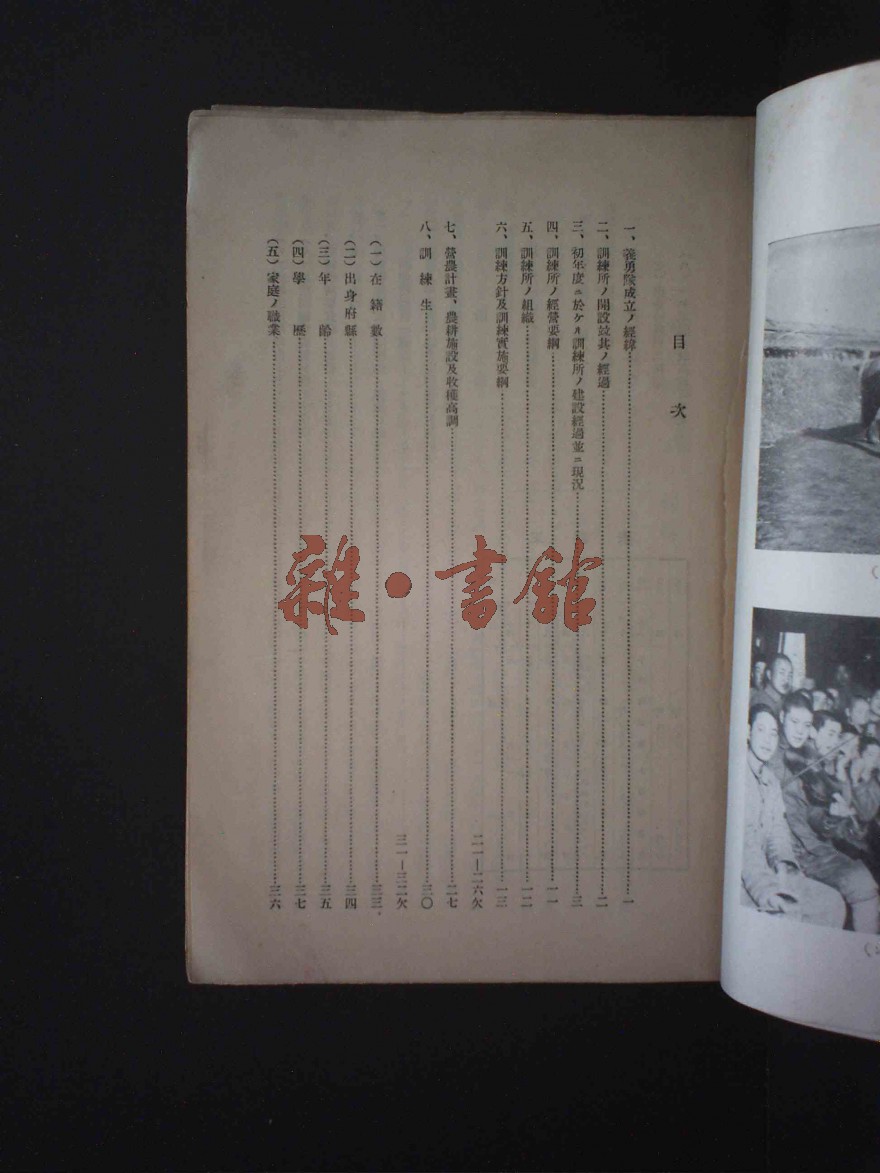 目次
一、義勇隊成立ノ經緯……一
二、訓練所ノ開設竝其ノ經過……二
三、初年度ニ於ケル訓練所ノ建設經過竝ニ現況……三
四、訓練所ノ經營要綱……一一
五、訓練所ノ組織……一二
六、訓練方針及訓練實施要綱……一三
二一―二六欠
七、營農計畫、農耕施設及收穫高調……二七
八、訓練生……三〇
三一―三二欠
(一)在籍數……三三
(二)出身府縣……三四
(三)年齡……三五
(四)學歷……三七
(五)家庭ノ職業……三六
雜・書館